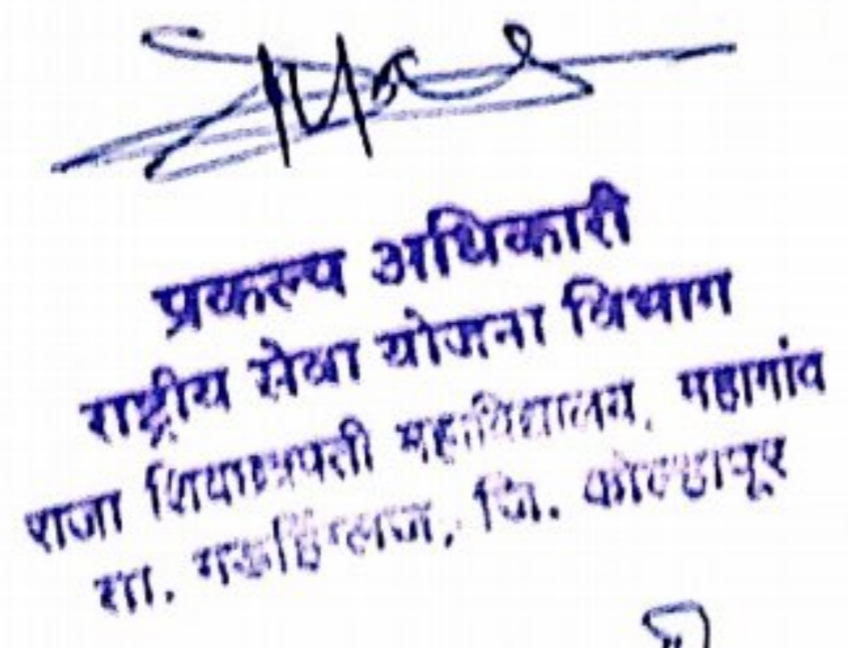 प्रकल्प अधिकारी
राष्ट्रीय सेवा योजना विभाग
राजा शिवछत्रपती महाविद्यालय, महागांव
ता. गडहिंग्लज, जि. कोल्हापूर